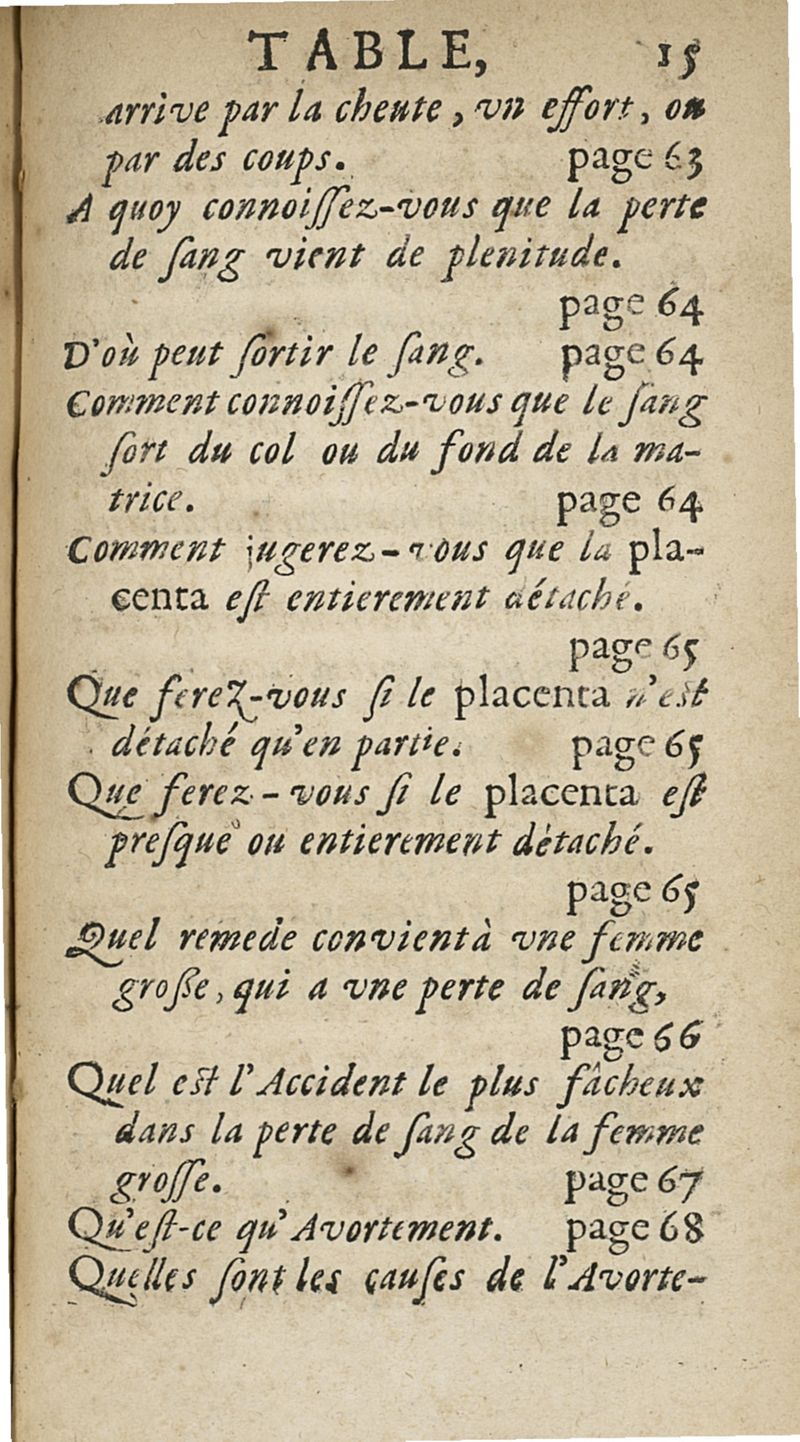 TABLE, 15
arrive par la cheute, vn effort, ou
par des coups. page 63
A quoy connoiſſez-vous que la perte
de ſang vient de plenitude.
page 64
D'où peut ſortir le ſang. page 64
Comment connoiſſez-vous que le ſang
ſort du col ou du fond de la ma-
trice. page 64
Comment jugerez-vous que la pla-
centa eſt entierement détaché.
page 65
Que ferez-vous ſi le placenta n'eſt
détaché qu'en partie. page 65
Que ferez-vous ſi le placenta eſt
preſque ou entierement dètaché.
page 65
Quel remede convient à vne femme
groſſe, qui a vne perte de ſang,
page 66
Quel eſt l'Accident le plus fâcheux
dans la perte de ſang de la femme
groſſe. page 67
Qu'eſt-ce qu'Avortement. page 68
Quelles ſont les cauſes de l'Avorte-